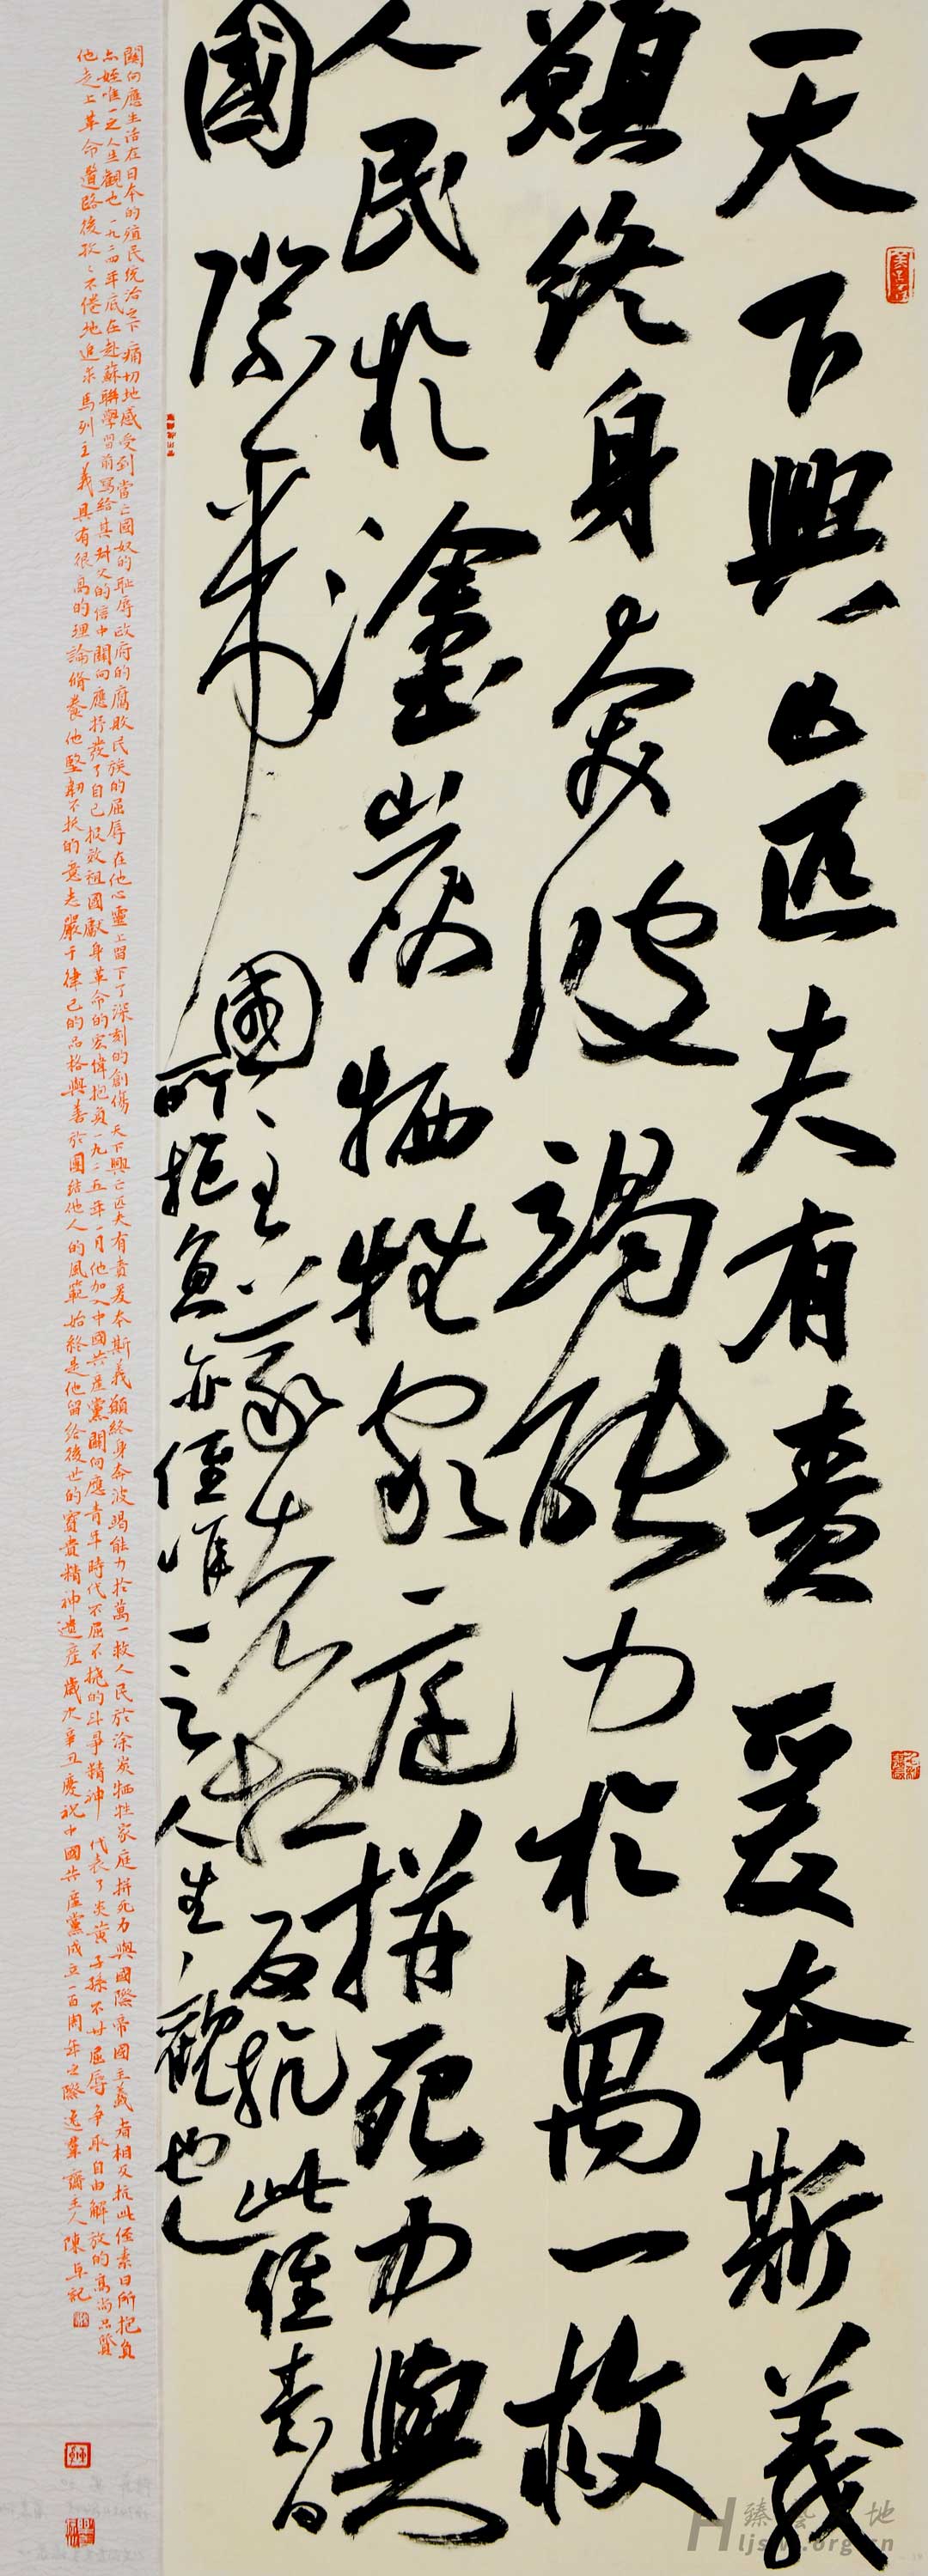 天下興亡匹夫有責爰本斯義
願終身奔波竭能力於萬一救
人民於塗炭犧牲家庭拼死力與
國際帝
國主義者相反抗此侄素日
所抱負亦侄唯一之人生觀也
關向應生活在日本的殖民統治之下痛切地感受到當亡國奴的恥辱政府的腐敗民族的屈辱在他心靈上留下了深刻的創傷天下興亡匹夫有責爰本斯義願終身奔波竭能力於萬一救人民於涂炭牺牲家庭拼死力與國際帝國主義者相反抗此侄素日所抱負
亦姪唯一之人生觀也一九二四年底在赴蘇聯學習前寫給其叔父的信中關向應抒發了自己報效祖國獻身革命的宏偉抱負一九二五年一月他加入中國共產黨關向應青年時代不屈不撓的斗爭精神代表了炎黃子孫不甘屈辱爭取自由解放的高尚品質
他走上革命道路後孜孜不倦地追求馬列主義具有很高的理論修養他堅韌不拔的意志嚴于律己的品格與善於團結他人的風範始終是他留給後世的寶貴精神遺產歲次辛丑慶祝中國共產黨成立一百周年之際逸羣齋主人陳卓記
臻藝 地